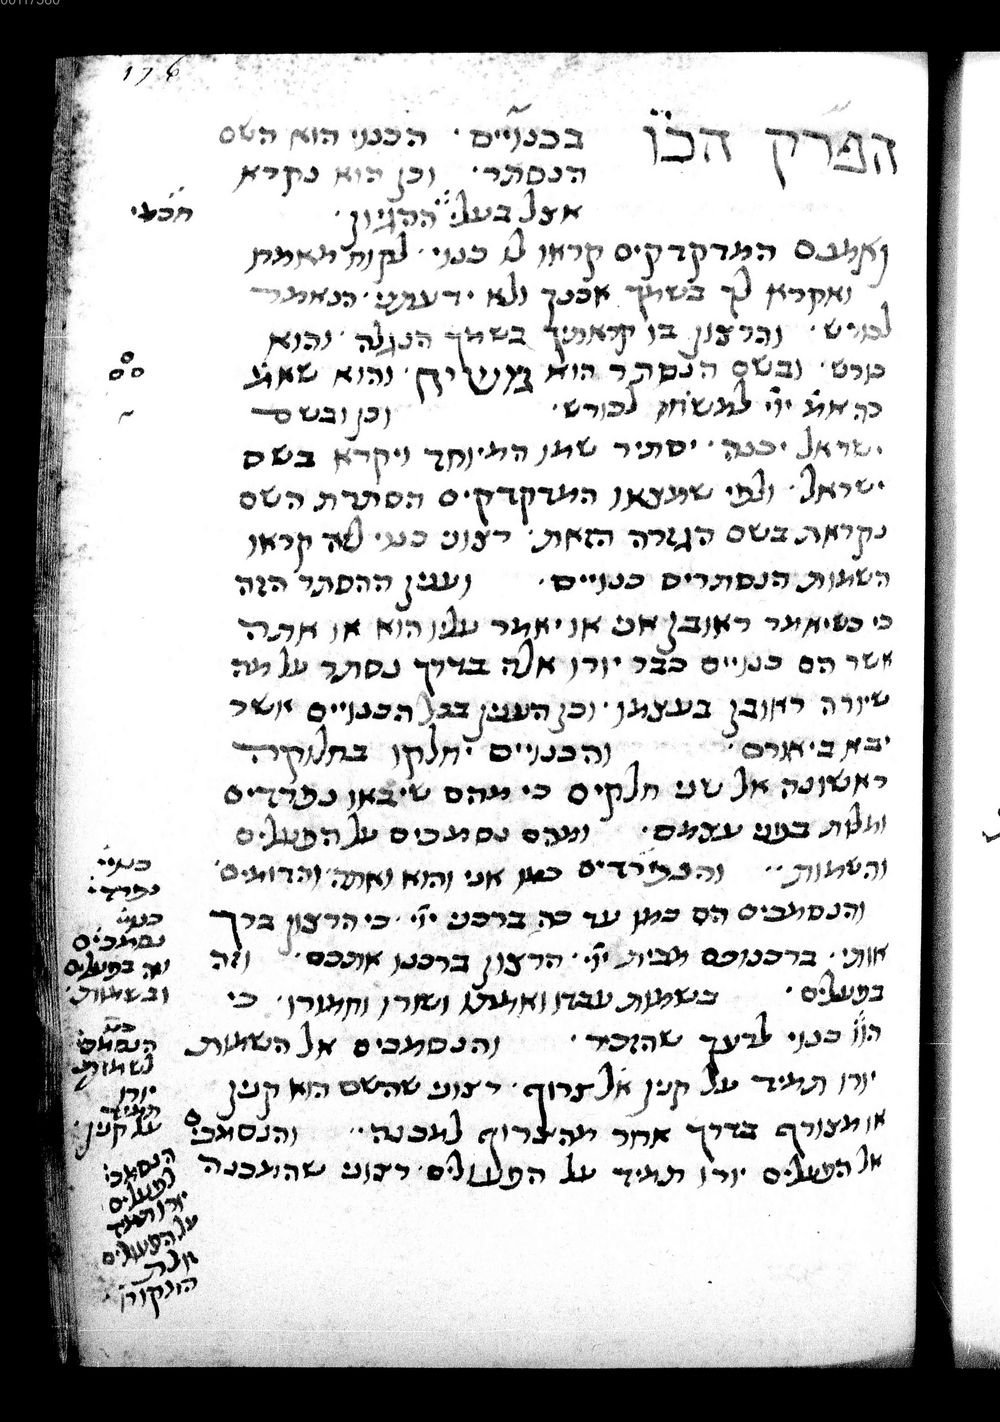 176
הפרק הכ״ו
בכנויים · הכנוי הוא השם
הנסתר · וכן הוא נקרא
אצל בעלי ההגיון ·
ואמנם המדקדקים קראו לו כנוי · לקוח מאמרו
ואקרא לך בשמך אכנך ולא ידעתני · הנאמר
לכורש · והרצון בו קראתיך בשמך הנגלה · והוא
כורש · ובשם הנסתר הוא משיח · והוא שאמ׳
כה אמ׳ יי׳ למשיחו לכורש · וכן ובשם
ישראל יכנה · יסתיר שמו המיוחד ויקרא בשם
ישראל · ולפי שמצאו המדקדקים הסתרת השם
נקראת בשם הגזרה הזאת · רצוני כנוי לזה קראו
השמות הנסתרים כנויים · וענין ההסתר הזה
כי כשיאמר ראובן אני או יאמר עליו הוא או אתה
אשר הם כנויים כבר יורו אלה בדרך נסתר על מה
שיורה ראובן בעצמו · וכן הענין בכל הכנויים אשר
יבא ביאורם · והכנויים יחלקו בחלוקה
ראשונה אל שני חלקים כי מהם שיבאו נפרדים
ומלות בפני עצמם · ומהם נסמכים על הפעלים
והשמות · · והנפרדים כמו אני והוא ואתה והדומים ·
והנסמכים הם כמו עד כה ברכני יי׳ · כי הרצון ברך
אותי · ברכנוכם מבית יי׳ · הרצון ברכנו אתכם · וזה
בפעלים · בשמות עבדו ואמתו ושורו וחמורו · כי
הוו כנוי לרעך שהזכיר · והנסמכים אל השמות
יורו תמיד על קנין או צרוף · רצוני שהשם הוא קנין
או מצורף בדרך אחר מהצרוף למכנה · · והנסמכי׳
אל הפעלים יורו תמיד על הפעולים · רצוני שהמכנה
כנויי׳
נפרדי׳
כנויי׳
נסמכים
וזה בפעלים
ובשמות ·
הנסמכי׳
לשמות
יורו
תמיד
על קנין ·
הנסמכי׳
לפעלים
יורו תמיד
על הפעולים